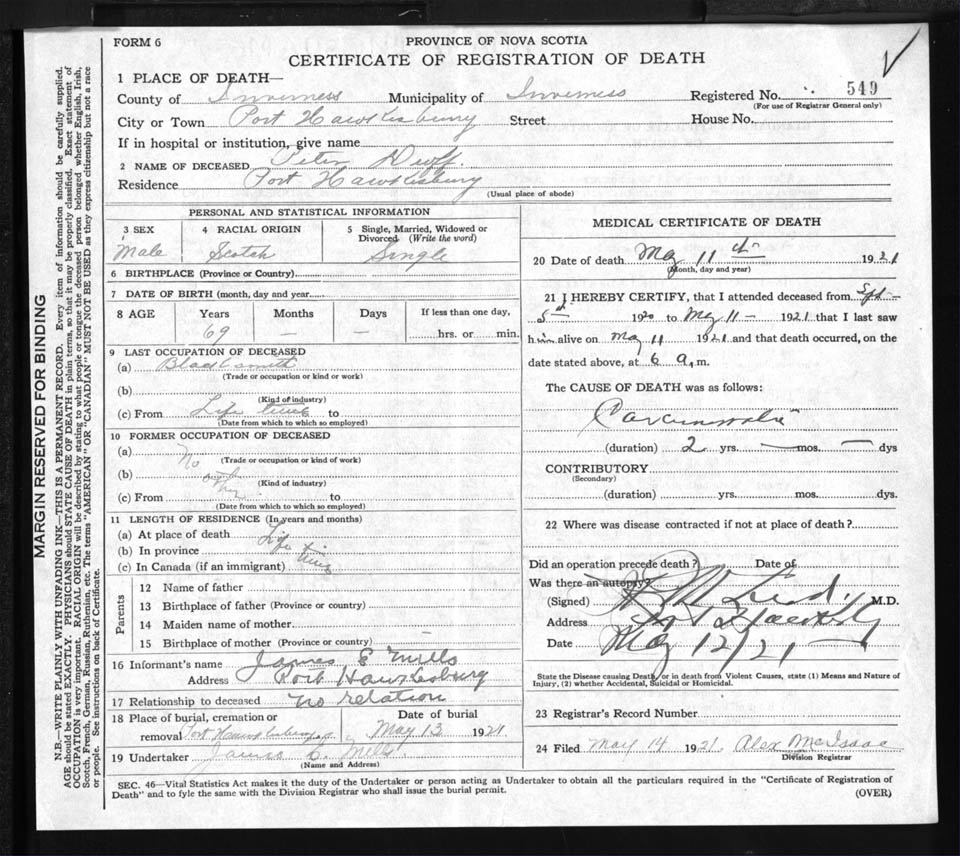 FORM 6
PROVINCE OF NOVA SCOTIA
CERTIFICATE OF REGISTRATION OF DEATH
1 PLACE OF DEATH—
County of Inverness Municipality of Inverness Registered No. 549
(For use of Registrar General only)
City or Town Port Hawkesbury Street House No.
If in hospital or institution, give name
2 NAME OF DECEASED Peter
Residence Port Hawkesbury
(Usual place of abode)
PERSONAL AND STATISTICAL INFORMATION
3 SEX 4 RACIAL ORIGIN 5 Single, Married, Widowed or
Divorced (Write the word)
Male Scotch Single
6 BIRTHPLACE (Province or Country)
7 DATE OF BIRTH (month, day and year
8 AGE Years Months Days If less than one day,
69 — — hrs. or min.
9 LAST OCCUPATION OF DECEASED
(a) Blacksmith
(Trade or occupation or kind or work)
(b)
(Kind of industry)
(c) From Life time to
(Date from which to which so employed)
10 FORMER OCCUPATION OF DECEASED
(a) No
(Trade or occupation or kind of work)
(b)
(Kind of industry)
(c) From to
(Date from which to which so employed)
11 LENGTH OF RESIDENCE (In years and months)
(a) At place of death Life
(b) In province time
(c) In Canada (if an immigrant)
Parents
12 Name of father
13 Birthplace of father (Province or country)
14 Maiden name of mother
15 Birthplace of mother (Province or country) —
16 Informant's name James E Mills
Address Port Hawkesburg
17 Relationship to deceased no relation
18 Place of burial, cremation or Date of burial
removal Port Hawkesbury May 13 1921
19 Undertaker James E. Mills
(Name and Address)
MEDICAL CERTIFICATE OF DEATH
20 Date of death May 11th 1921
(Month, day and year)
21 I HEREBY CERTIFY, that I attended deceased from Sept
5th 1920 to May 11 — 1921 that I last saw
him alive on May 11 1921 and that death occurred, on the
date stated above, at 6 a.m.
The CAUSE OF DEATH was as follows:
(duration) 2 yrs. — mos. — dys
CONTRIBUTORY
(Secondary)
(duration) yrs. mos. dys.
22 Where was disease contracted if not at place of death?
Did an operation precede death? Date of
Was there an autopsy?
(Signed) M.D.
Address
Date May 12/21
State the Disease causing Death, or in death from Violent Causes, state (1) Means and Nature of
Injury, (2) whether Accidental, Suicidal or Homicidal.
23 Registrar's Record Number
24 Filed May 14 1921 Alex McIsaac
Division Registrar
SEC. 46—Vital Statistics Act makes it the duty of the Undertaker or person acting as Undertaker to obtain all the particulars required in the "Certificate of Registration of
Death" and to fyle the same with the Division Registrar who shall issue the burial permit.
(OVER)
MARGIN RESERVED FOR BINDING
N.B.—WRITE PLAINLY WITH UNFADING INK—THIS IS A PERMANENT RECORD. Every item of information should be carefully supplied.
AGE should be stated EXACTLY. PHYSICIANS should STATE CAUSE OF DEATH in plain terms, so that it may be properly classified. Exact statement of
OCCUPATION is very important. RACIAL ORIGIN will be described by stating to what people or tongue the deceased person belonged whether English, Irish,
Scotch, French, German, Russian, Ruthenian, etc. The terms "AMERICAN" OR "CANADIAN" MUST NOT BE USED as they express citizenship but not a race
or people. See instructions on back of Certificate.